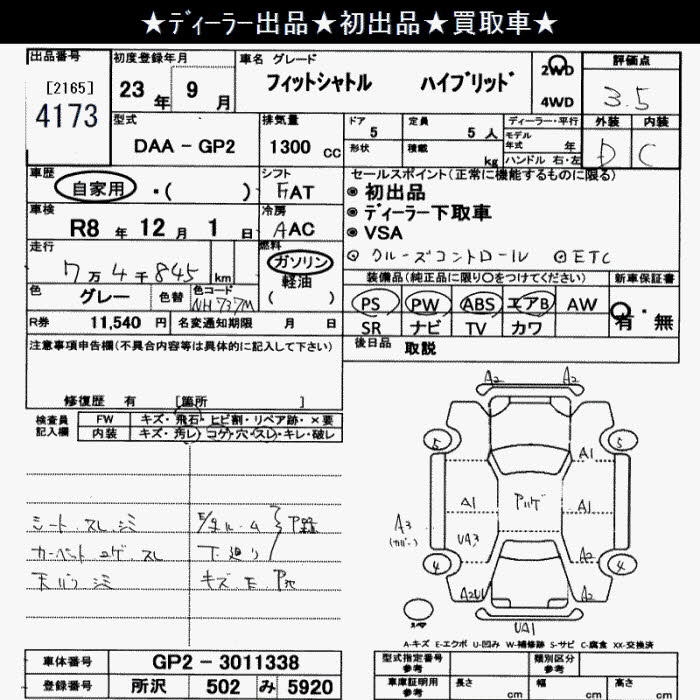 ★ディーラー出品★初出品★買取車★
出品番号
[2165]
4173
初度登録年月
23年 9月
車名 グレード
フィットシャトル ハイブリッド
2WD
4WD
評価点
3.5
外装 内装
D C
型式
DAA - GP2
排気量
1300 cc
ドア
5
定員
5人
形状
積載
kg
ディーラー・平行
モデル年式 年
ハンドル 右・左
車歴
自家用 ・( )
シフト
FAT
車検
R8年 12月 1日
冷房
AAC
走行
7万4千845 km
燃料
ガソリン
軽油
( )
色
グレー
色替
色コード
NH737M
R券 11,540 円
名変通知期限 月 日
セールスポイント(正常に機能するものに限る)
◉ 初出品
◉ ディーラー下取車
◉ VSA
⊙ クルーズコントロール ⊙ETC
装備品(純正品に限り○をつけてください)
新車保証書
PS PW ABS エアB AW
SR ナビ TV カワ
有・無
後日品 取説
注意事項申告欄(不具合内容等は具体的に記入して下さい)
修復歴 有 [箇所 ]
検査員記入欄
FW キズ・飛石・ヒビ割・リペア跡・×要
内装 キズ・汚レ・コゲ・穴・スレ・キレ・破レ
シート スレ シミ
カーペット コゲ スレ
天バリ シミ
下廻り
キズ E
A2 A2
5 5
A1
A1 A1
UA3
A3
(カバー)
A2
4 4
A2U1 A2
UA1
スペア
A-キズ E-エクボ U-凹み W-補修跡 S-サビ C-腐食 XX-交換済
車体番号 GP2 - 3011338
登録番号 所沢 502 み 5920
型式指定番号
参考
類別区分
参考
車庫証明用
参考
長さ cm
幅 cm
高さ cm